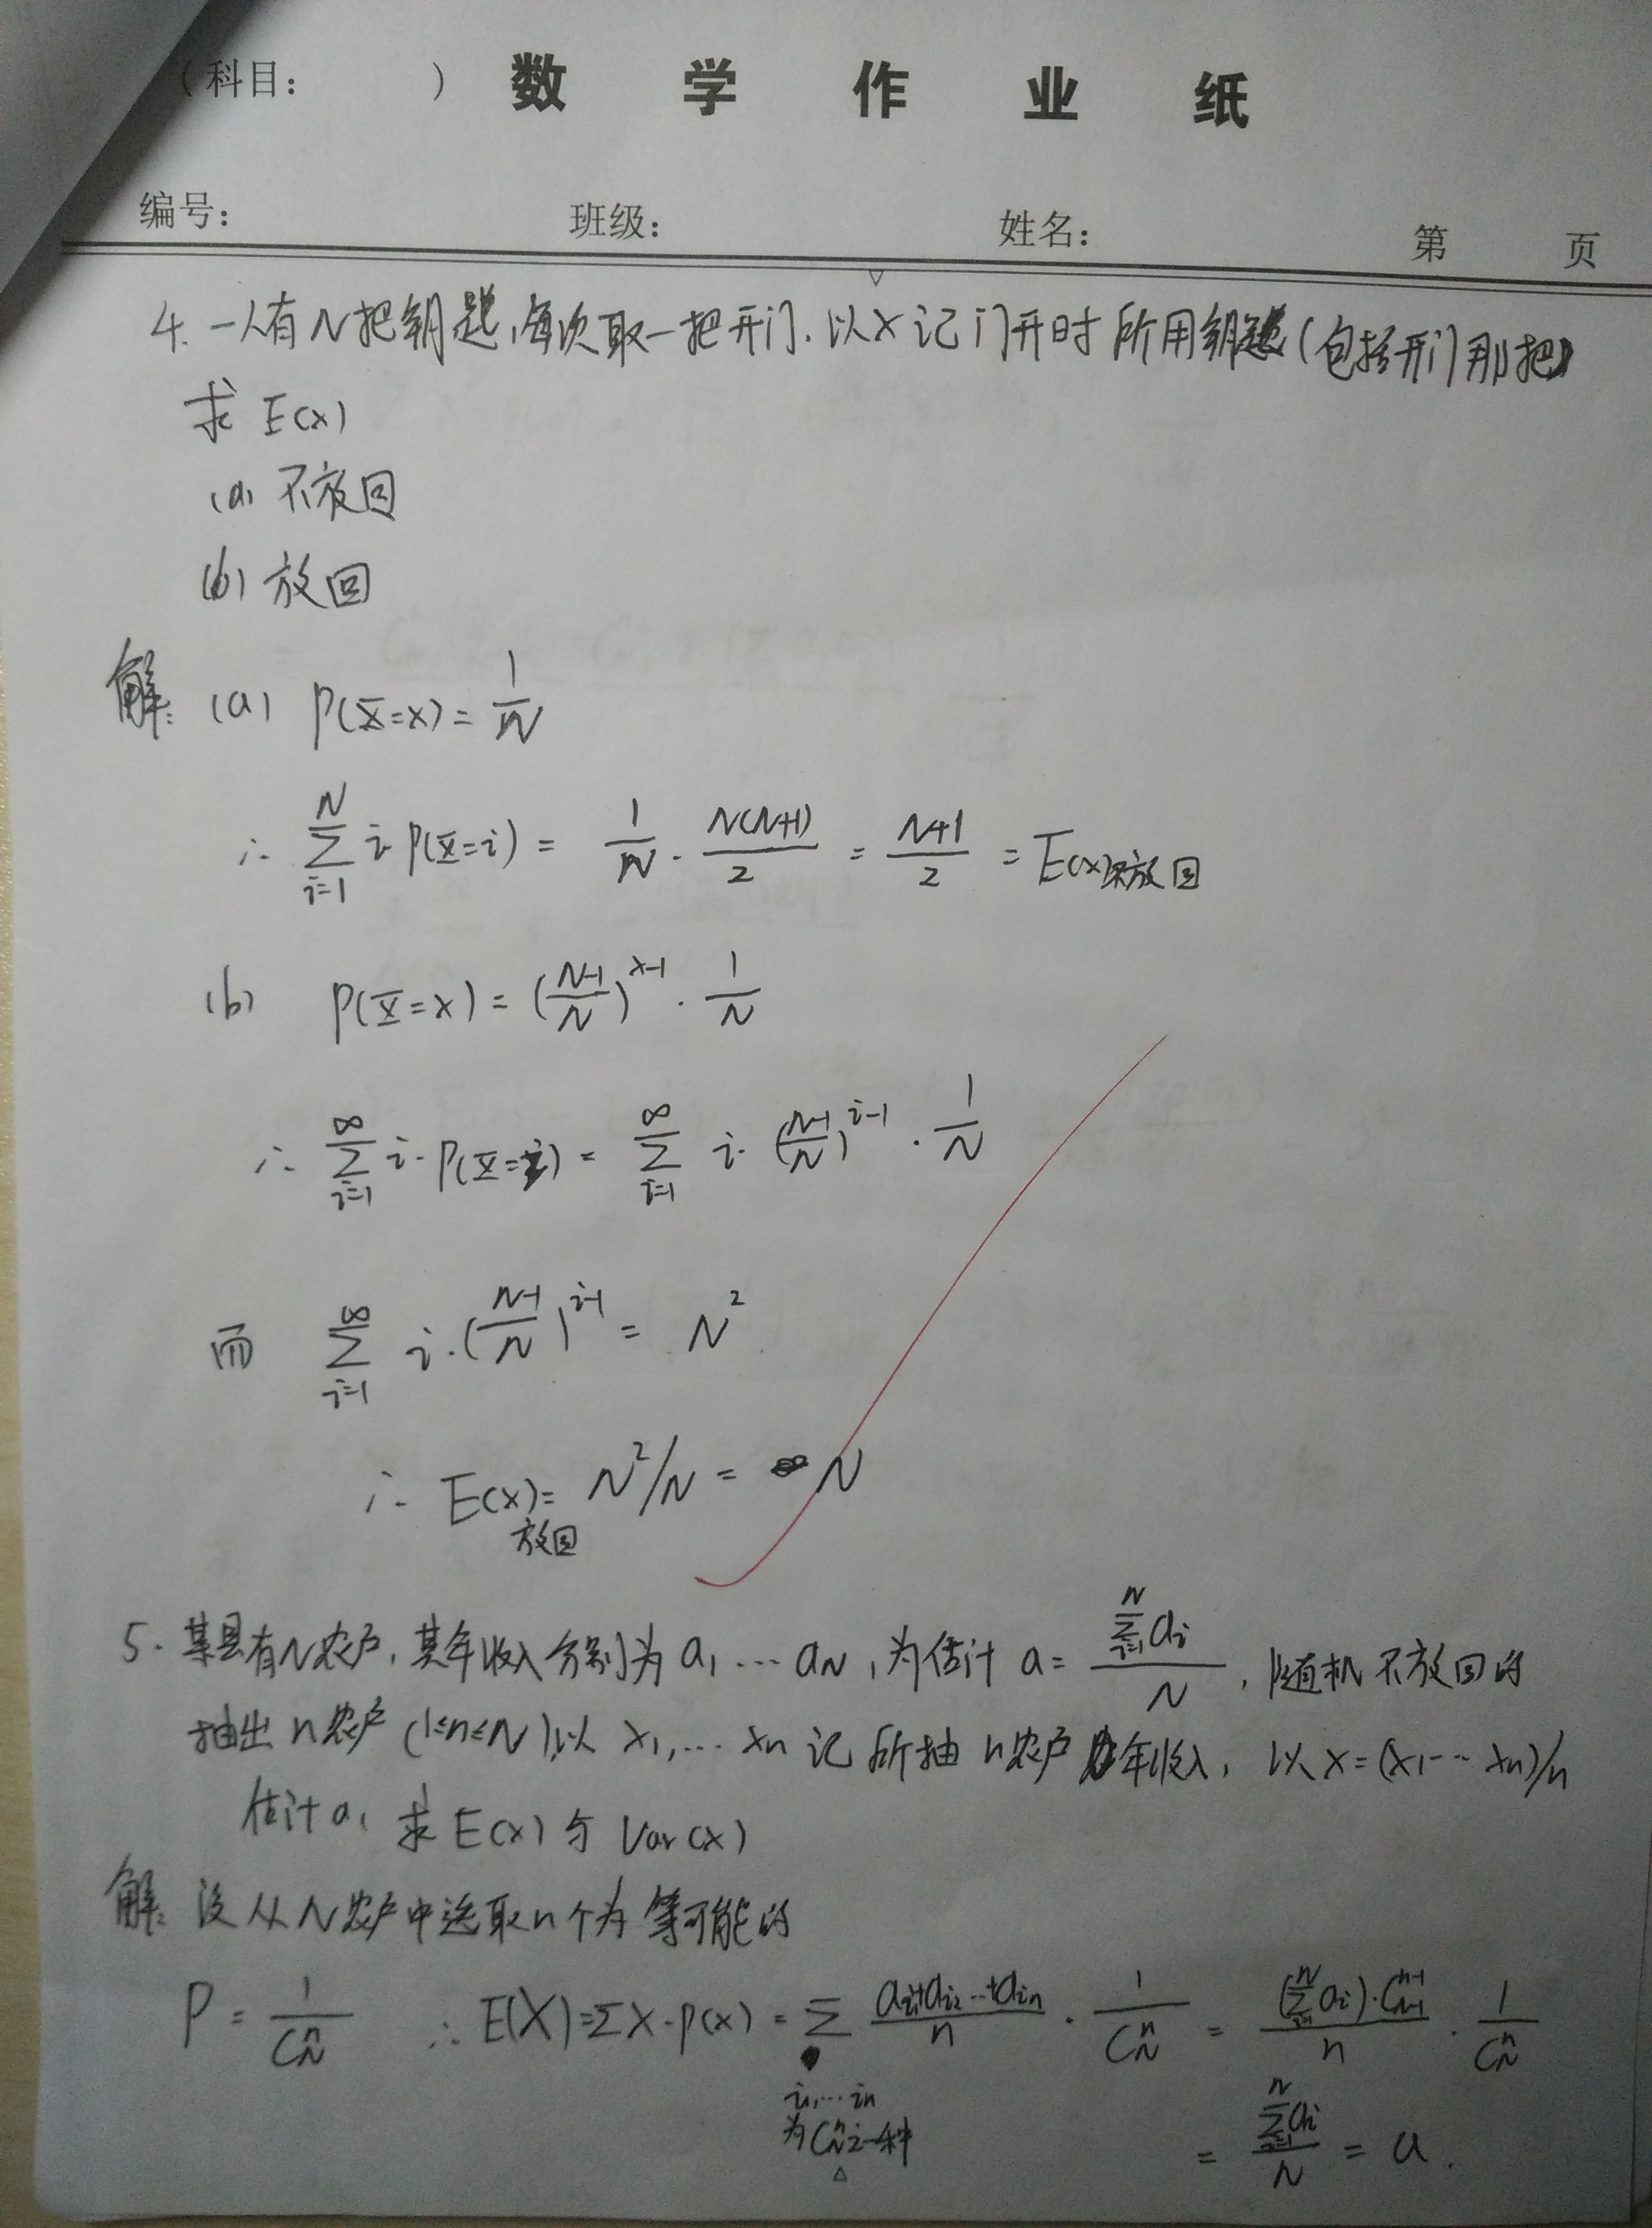 (科目: ) 数 学 作 业 纸
编号: 班级: 姓名: 第 页
4. 一人有N把钥匙,每次取一把开门.以X记门开时所用钥匙(包括开门那把)
求 E(x)
(a) 不放回
(b) 放回
解: (a) P(X=x) = 1/N
∴ ∑_{i=1}^{N} i·P(X=i) = 1/N · N(N+1)/2 = (N+1)/2 = E(x)不放回
(b) P(X=x) = ((N-1)/N)^{x-1} · 1/N
∴ ∑_{i=1}^{∞} i·P(X=i) = ∑_{i=1}^{∞} i·((N-1)/N)^{i-1} · 1/N
而 ∑_{i=1}^{∞} i·((N-1)/N)^{i-1} = N²
∴ E(x)放回 = N²/N = N
5. 某县有N农户,其年收入分别为 a₁ ··· a_N ,为估计 a = ∑_{i=1}^{N} a_i / N ,随机不放回的
抽出 n农户 (1≤n≤N),以 x₁,··· x_n 记所抽 n农户 年收入, 以 x=(x₁··· x_n)/n
估计a, 求 E(x) 与 Var(x)
解: 设从N农户中选取n个为等可能的
P = 1/C_N^n ∴ E(X)=∑X·P(x) = ∑ (a_{i1}+a_{i2}···+a_{in})/n · 1/C_N^n = (∑_{i=1}^{N} a_i)·C_{N-1}^{n-1}/n · 1/C_N^n
i₁,··· i_n
为C_N^n之一种
= ∑_{i=1}^{N} a_i / N = a .